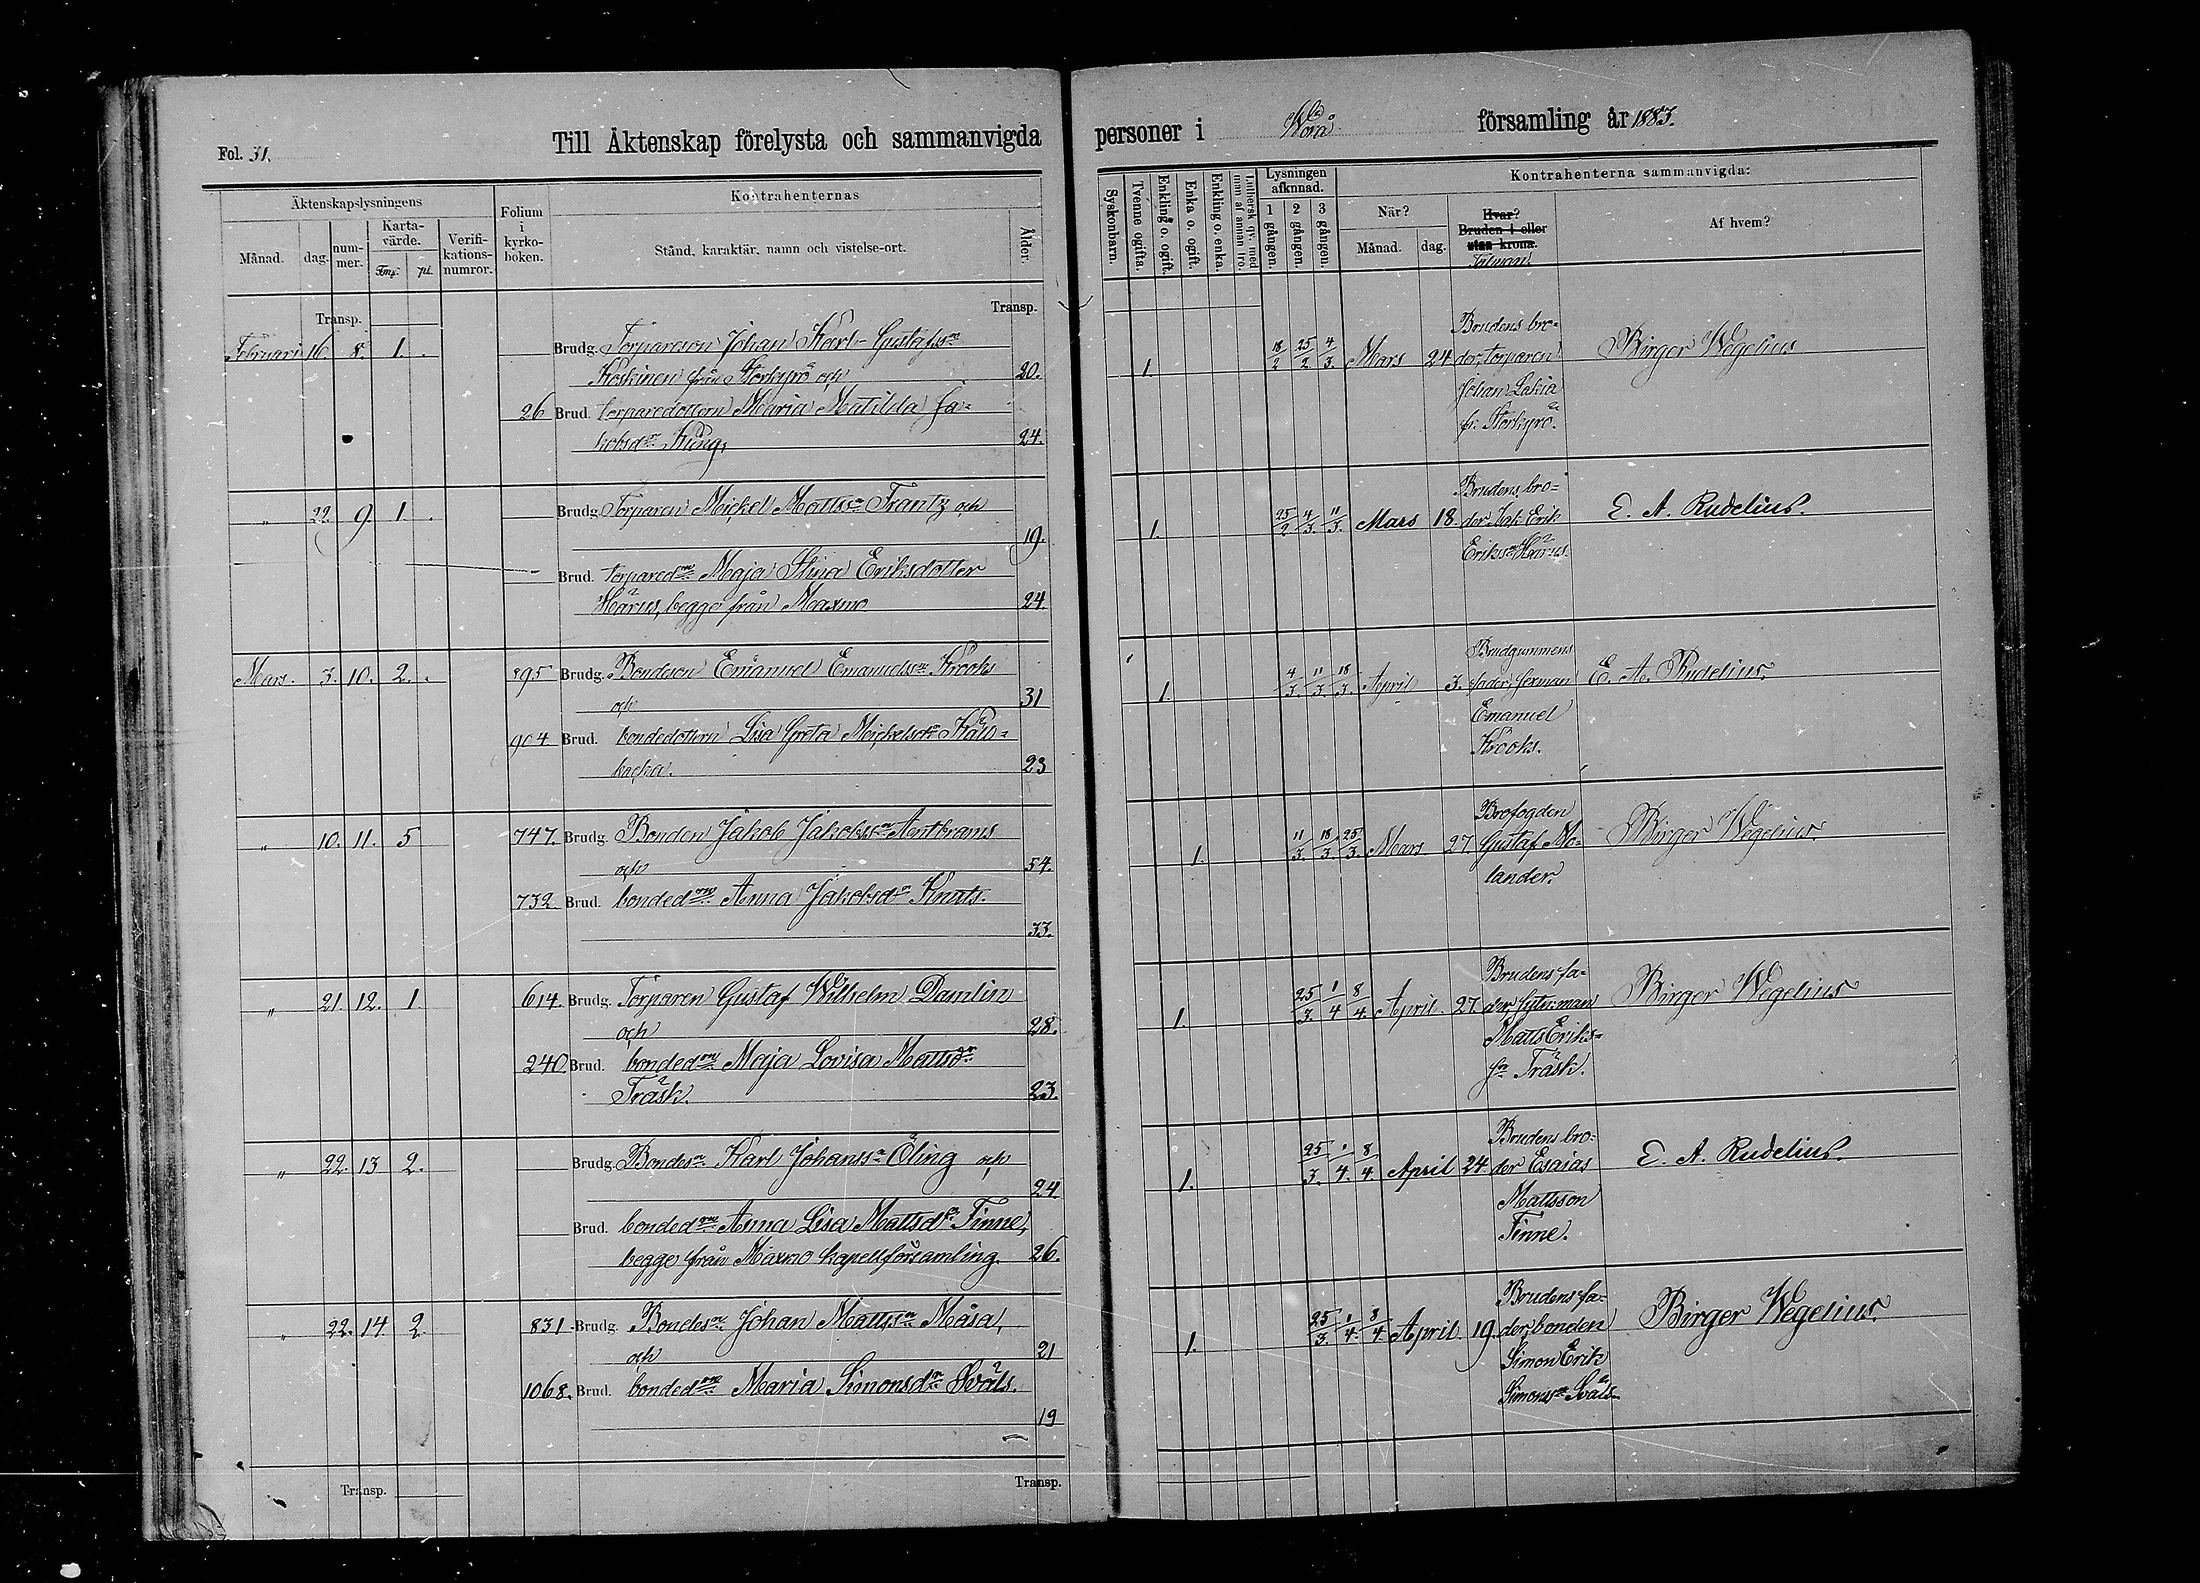 Fol. 31.
Till Äktenskap förelysta och sammanvigda
personer i Wörå församling år 1883.
Äktenskapslysningens
Månad. dag. num-mer. Karta-värde. Fmk. pi. Verifi-kations-numror.
Folium i kyrko-boken.
Kontrahenternas
Stånd, karaktär, namn och vistelse-ort.
Ålder.
Syskonbarn. Tvenne ogifta. Enkling o. ogift. Enka o. ogift. Enkling o. enka. Luthersk qv. med man af annan tro.
Lysningen afknnad.
1 gången. 2 gången. 3 gången.
Kontrahenterna sammanvigda:
När?
Månad. dag.
Hvar?
Bruden i eller
utan krona.
Talman
Af hvem?
Transp. Transp.
Februari 16. 8. 1. Brudg. Torpareson Johan Karl Gustafssn
Koskinen från Storkyrö och 20.
26 Brud. torparedottern Maria Matilda Ja-
kobsdr Kung, 24.
1. 18/2 25/2 4/3 Mars 24 Brudens bro-
der, torparen
Johan Lakia
fr. Storkyrö.
Birger Wegelius
" 22. 9. 1. Brudg. Torparen Mickel Mattssn Frantz och
19.
Brud. torparedn Maja Stina Eriksdotter
Härus, begge från Maxmo 24.
1. 25/2 4/3 11/3 Mars 18. Brudens bro-
der Jak. Erik
Erikssn Härus.
E. A. Rudelius.
Mars. 3. 10. 2. 895 Brudg. Bondeson Emanuel Emanuelssn Krooks
och 31
904 Brud. bondedottern Lisa Greta Mickelsdr Kåu-
kacka. 23
1. 4/3 11/3 18/3 April 3. Brudgummens
fader, sexman
Emanuel
Krooks.
E. A. Rudelius.
" 10. 11. 5 747. Brudg. Bonden Jakob Jakobssn Antbrams
och 54.
732 Brud. bondedn Anna Jakobsdr Knuts.
33.
1. 11/3 18/3 25/3 Mars 27. Brofogden
Gustaf Mo-
lander.
Birger Wegelius.
" 21. 12. 1. 614. Brudg. Torparen Gustaf Wilhelm Damlin
och 28.
240. Brud. bondedn Maja Lovisa Mattsdr
Träsk. 23.
1. 25/3 1/4 8/4 April 27. Brudens fa-
der, sytnman
Matts Eriks-
sn Träsk.
Birger Wegelius
" 22. 13 2. Brudg. Bondesn Karl Johanssn Öling och
24
Brud. bondedn Anna Lisa Mattsdr Finne,
begge från Maxmo kapellförsamling. 26.
1. 25/3 1/4 8/4 April 24. Brudens bro-
der Esaias
Mattsson
Finne.
E. A. Rudelius.
" 22. 14. 2. 831. Brudg. Bondesn Johan Mattssn Måsa,
och 21
1068. Brud. bondedn Maria Simonsdr Svals.
19
1. 25/3 1/4 8/4 April 19. Brudens fa-
der, bonden
Simon Erik
Simonssn Svals.
Birger Wegelius.
Transp. Transp.